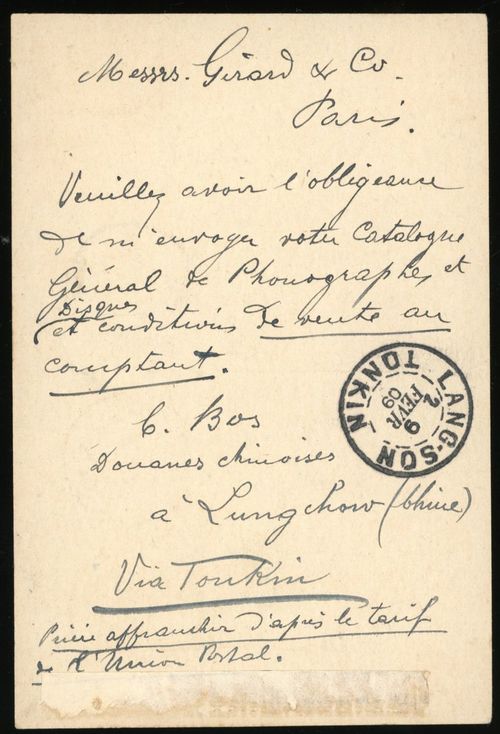 Messrs. Girard & Co.
Paris.
Veuillez avoir l'obligeance
de m'envoyer votre Catalogue
Général de Phonographes et
Disques
et conditions de vente au
comptant.
C. Bos
Douanes chinoises
à Lungchow (Chine)
Via Tonkin
Prière affranchir d'après le tarif
de l'Union Postal.
LANG-SON TONKIN
2
9
FEVR
09